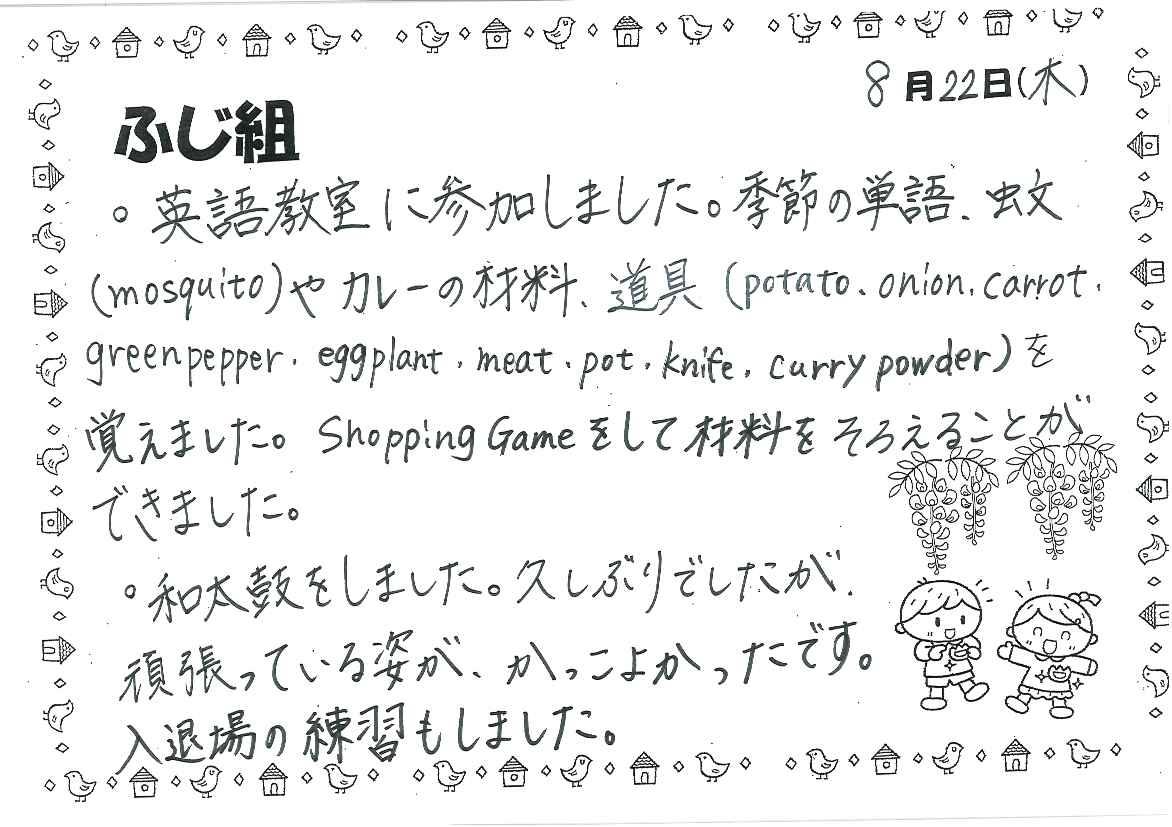 8月22日(木)
ふじ組
。英語教室に参加しました。季節の単語、蚊
(mosquito)やカレーの材料、道具(potato、onion、carrot、
greenpepper、eggplant、meat、pot、knife、curry powder)を
覚えました。Shopping Gameをして材料をそろえることが
できました。
。和太鼓をしました。久しぶりでしたが、
頑張っている姿が、かっこよかったです。
入退場の練習もしました。